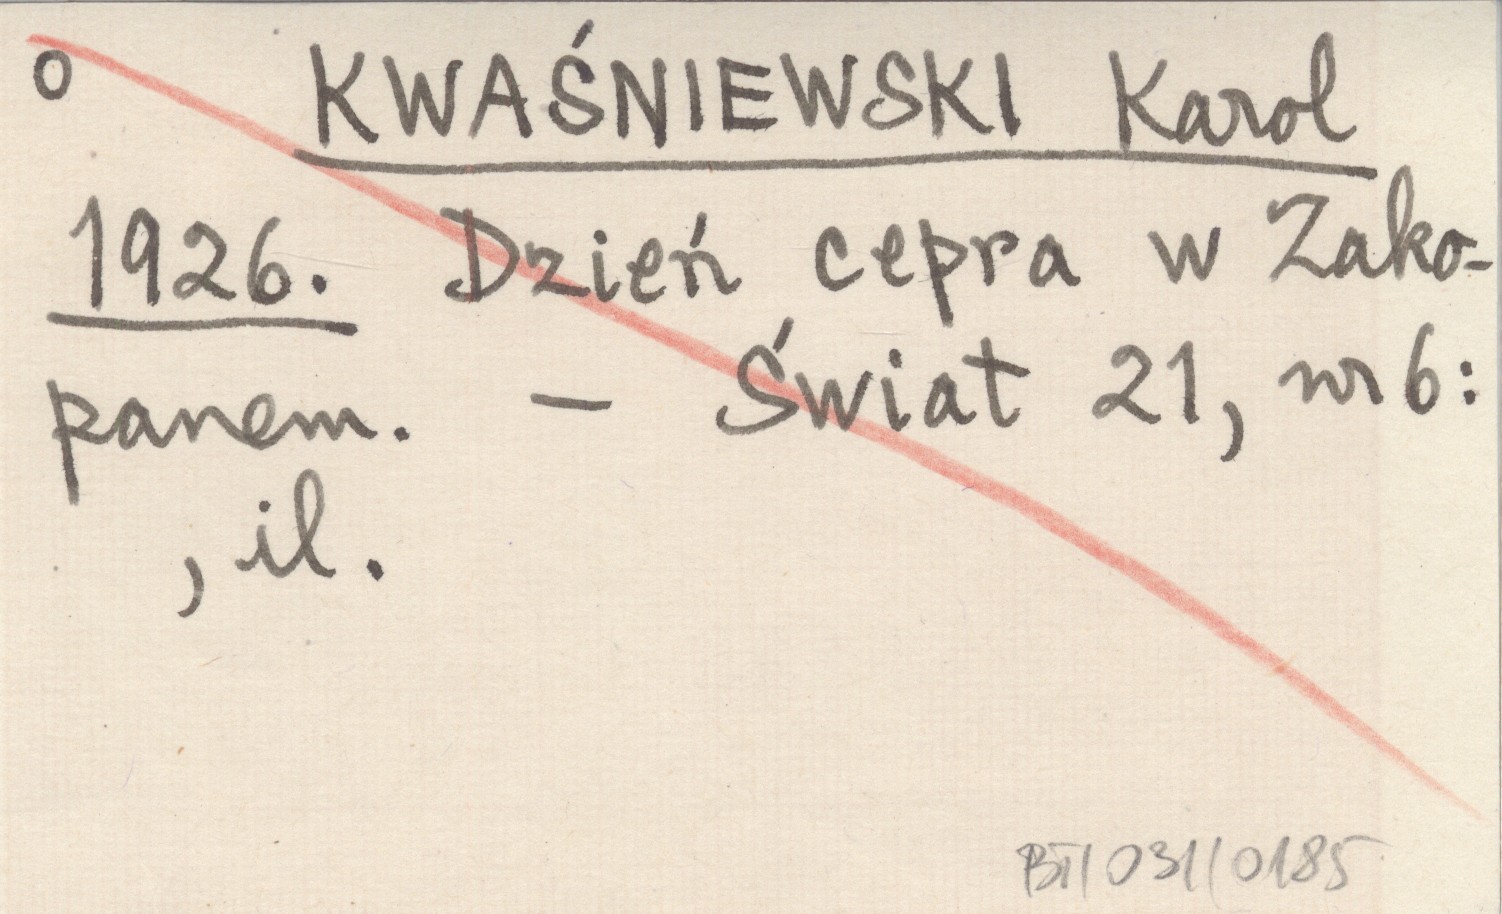 o KWAŚNIEWSKI Karol
1926. Dzień cepra w Zako-
panem. – Świat 21, nr 6:
, il.
BT/031/0185